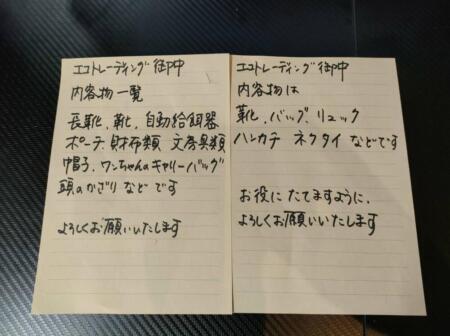 エコトレーディング御中
内容物一覧
長靴、靴、自動給餌器
ポーチ、財布類 文房具類
帽子、ワンちゃんのキャリーバッグ
頭のかざり などです
よろしくお願いいたします
エコトレーディング御中
内容物は
靴、バッグ、リュック
ハンカチ ネクタイ などです
お役に たてますように、
よろしくお願いいたします